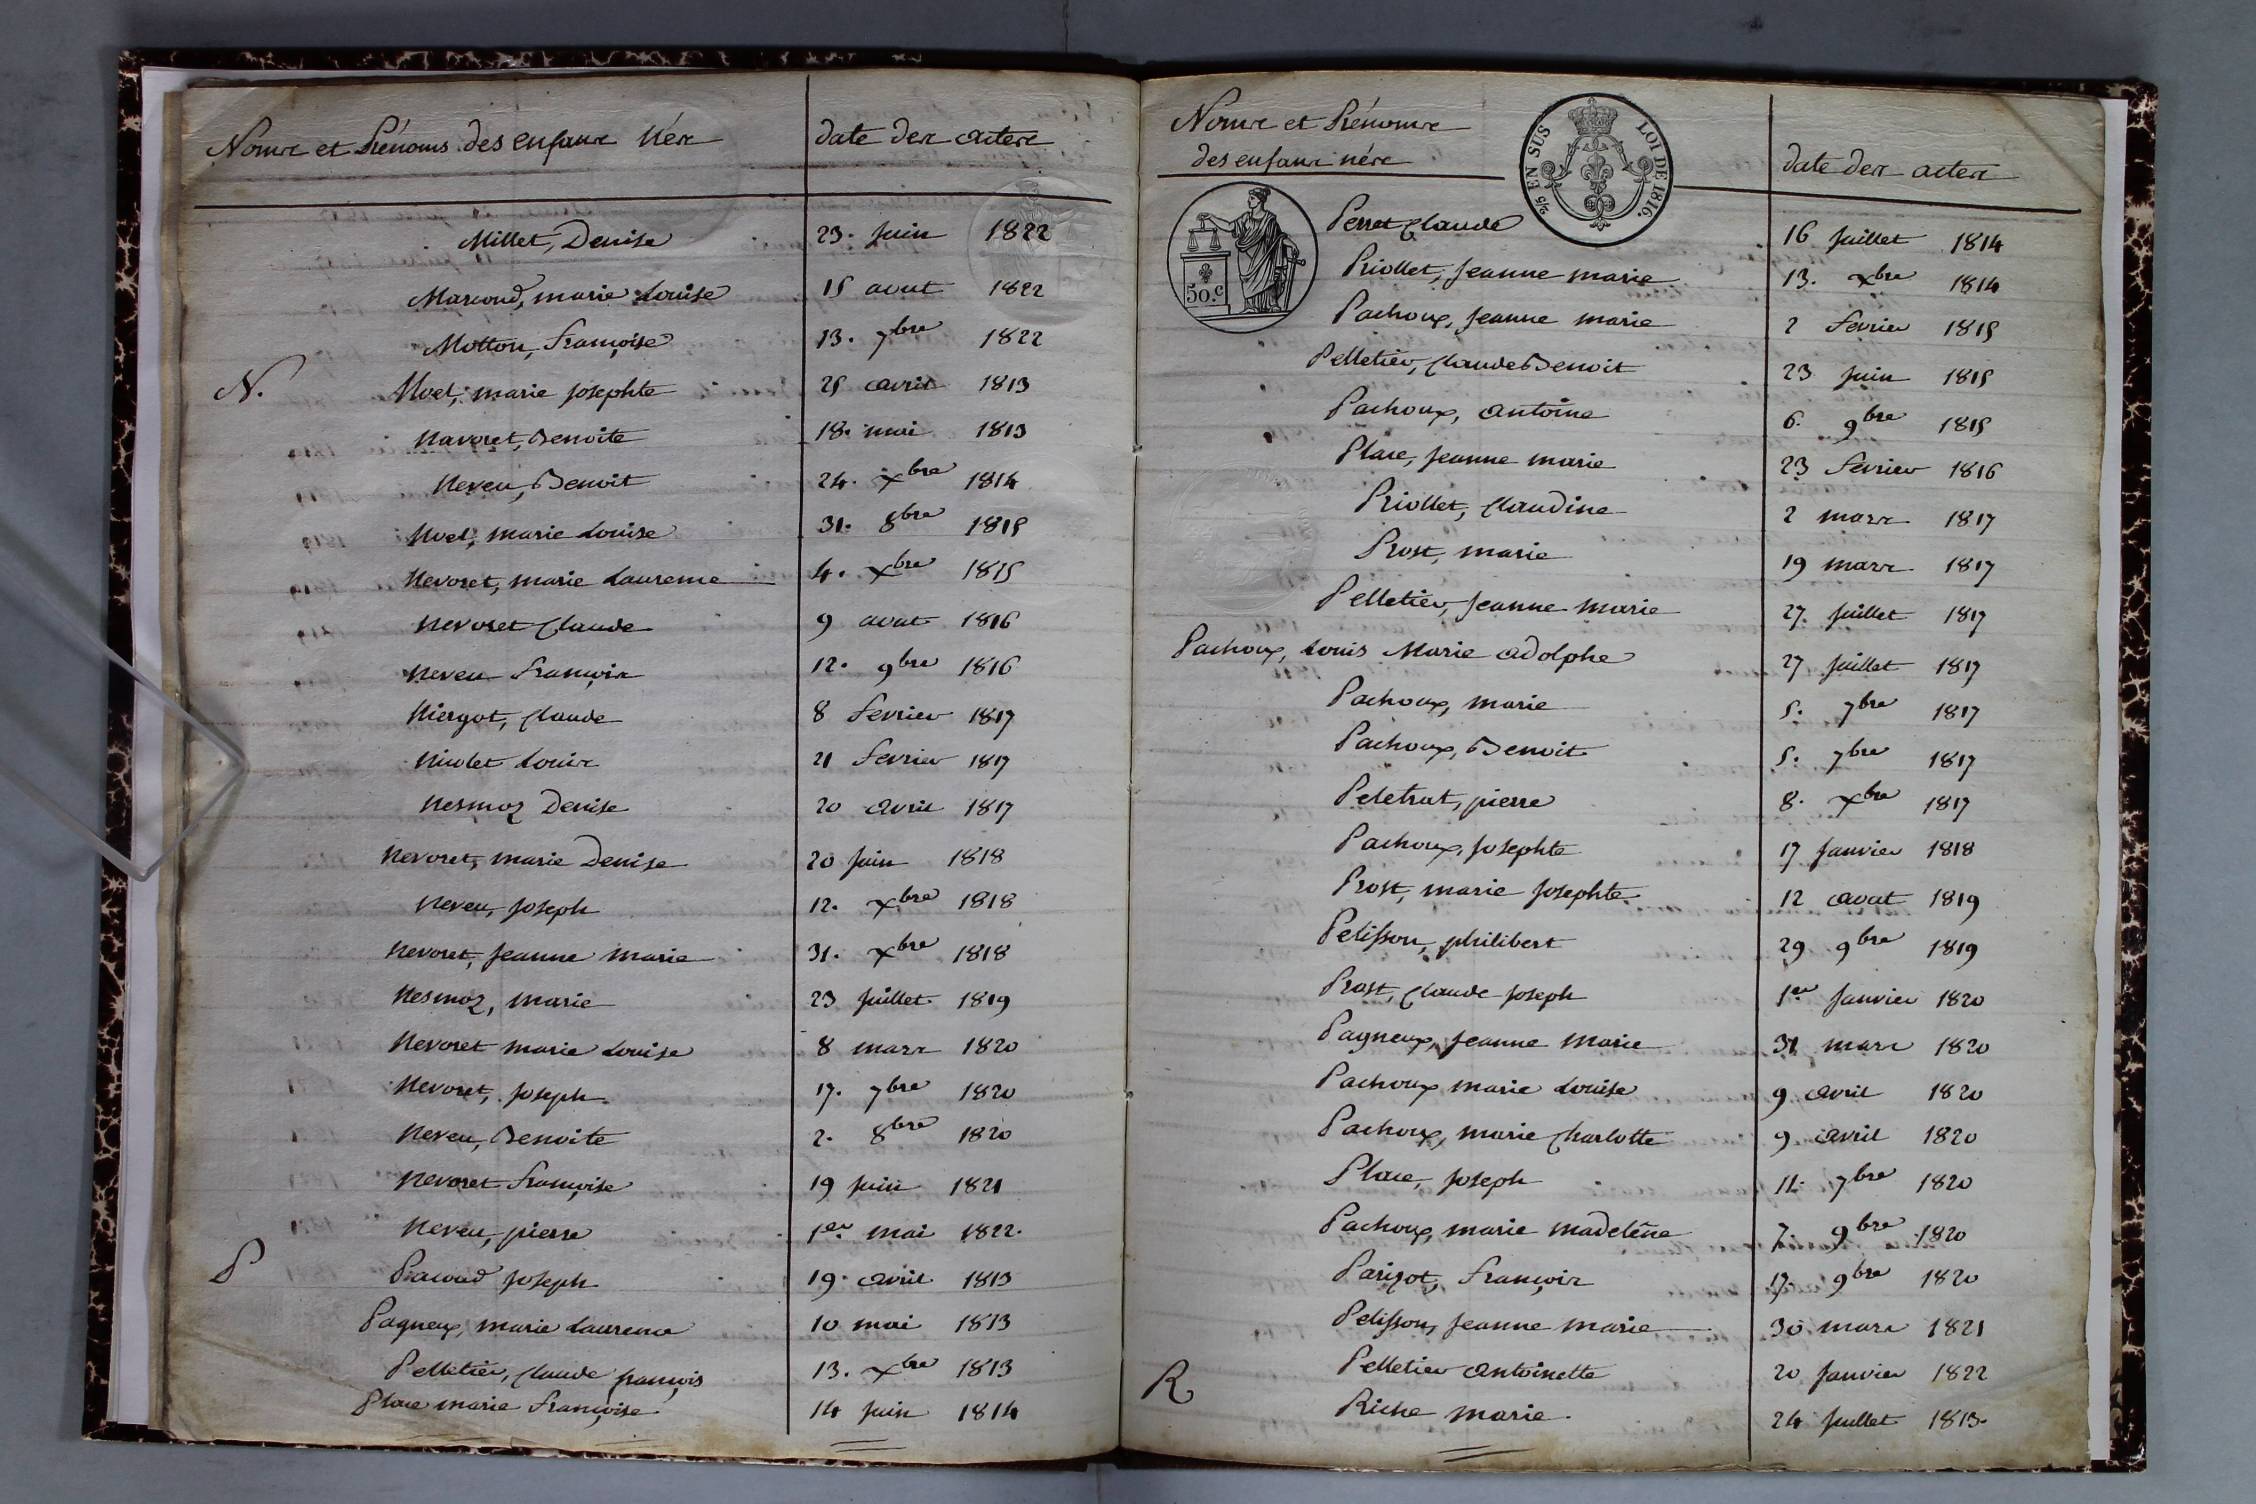 Noms et Prénoms des enfans nés date des actes
Millet, Denise 23. juin 1822
Marcoud, marie Louise 15 aout 1822
Motton, Françoise 13. 7bre 1822
N. Noel, marie josephte 25 avril 1813
Navoret, Benoite 18. mai 1813
Neveu, Benoit 24. xbre 1814
Noel, marie Louise 31. 8bre 1815
Nevoret, marie Laurence 4. xbre 1815
Nevoret Claude 9 aout 1816
Neveu François 12. 9bre 1816
Niergot, Claude 8 fevrier 1817
Nicolet Louis 21 fevrier 1817
Nesmoz Denise 20 avril 1817
Nevoret, marie Denise 20 juin 1818
Neveu, joseph 12. xbre 1818
Nevoret, jeanne marie 31. xbre 1818
Nesmoz, marie 23 juillet 1819
Nevoret marie Louise 8 mars 1820
Nevoret, joseph 17. 7bre 1820
Neveu, Benoite 2. 8bre 1820
Nevoret Françoise 19 juin 1821
Neveu, pierre 1er mai 1822.
P Pacoud joseph 19. avril 1813
Pagneux, marie Laurence 10 mai 1813
Pelletier, Claude françois 13. xbre 1813
Place marie Françoise 14 juin 1814
Noms et Prénoms
des enfans nés date des actes
5/2 EN SUS LOI DE 1816.
50.c
Perret Claude 16 juillet 1814
Priollet, jeanne marie 13. xbre 1814
Pachoux, jeanne marie 2 fevrier 1815
Pelletier, Claude Benoit 23 juin 1815
Pachoux, antoine 6. 9bre 1815
Place, jeanne marie 23 fevrier 1816
Priollet, Claudine 2 mars 1817
Prost, marie 19 mars 1817
Pelletier, jeanne marie 27. juillet 1817
Pachoux, Louis Marie adolphe 27 juillet 1817
Pachoux, marie 5. 7bre 1817
Pachoux, Benoit 5. 7bre 1817
Peletrat, pierre 8. xbre 1817
Pachoux, josephte 17 janvier 1818
Prost, marie josephte 12 aout 1819
Pelisson, philibert 29 9bre 1819
Prost, Claude joseph 1er janvier 1820
Pagneux, jeanne marie 31 mars 1820
Pachoux marie Louise 9 avril 1820
Pachoux, marie Charlotte 9 avril 1820
Place, joseph 11. 7bre 1820
Pachoux, marie madelène 7. 9bre 1820
Parizot, François 17. 9bre 1820
Pelisson, jeanne marie 30 mars 1821
Pelletier antoinette 20 janvier 1822
R Riche marie. 24 juillet 1813.